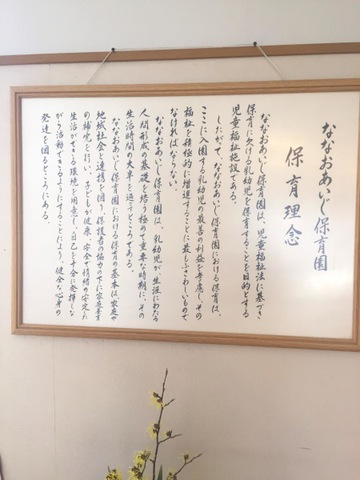 ななおあいじ保育園
保育理念
ななおあいじ保育園は、児童福祉法に基づき
保育に欠ける乳幼児を保育することを目的とする
児童福祉施設である。
したがって、ななおあいじ保育園における保育は、
ここに入園する乳幼児の最善の利益を考慮し、その
福祉を積極的に増進することに最もふさわしいもので
なければならない。
ななおあいじ保育園は、乳幼児が、生涯にわたる
人間形成の基礎を培う極めて重要な時期に、その
生活時間の大半を過ごすところである。
ななおあいじ保育園における保育の基本は、家庭や
地域社会と連携を図り、保護者の協力の下に家庭養育
の補完を行い、子どもが健康、安全で情緒の安定した
生活ができる環境を用意し、自己を十分に発揮しな
がら活動できるようにすることにより、健全な心身の
発達を図るところにある。